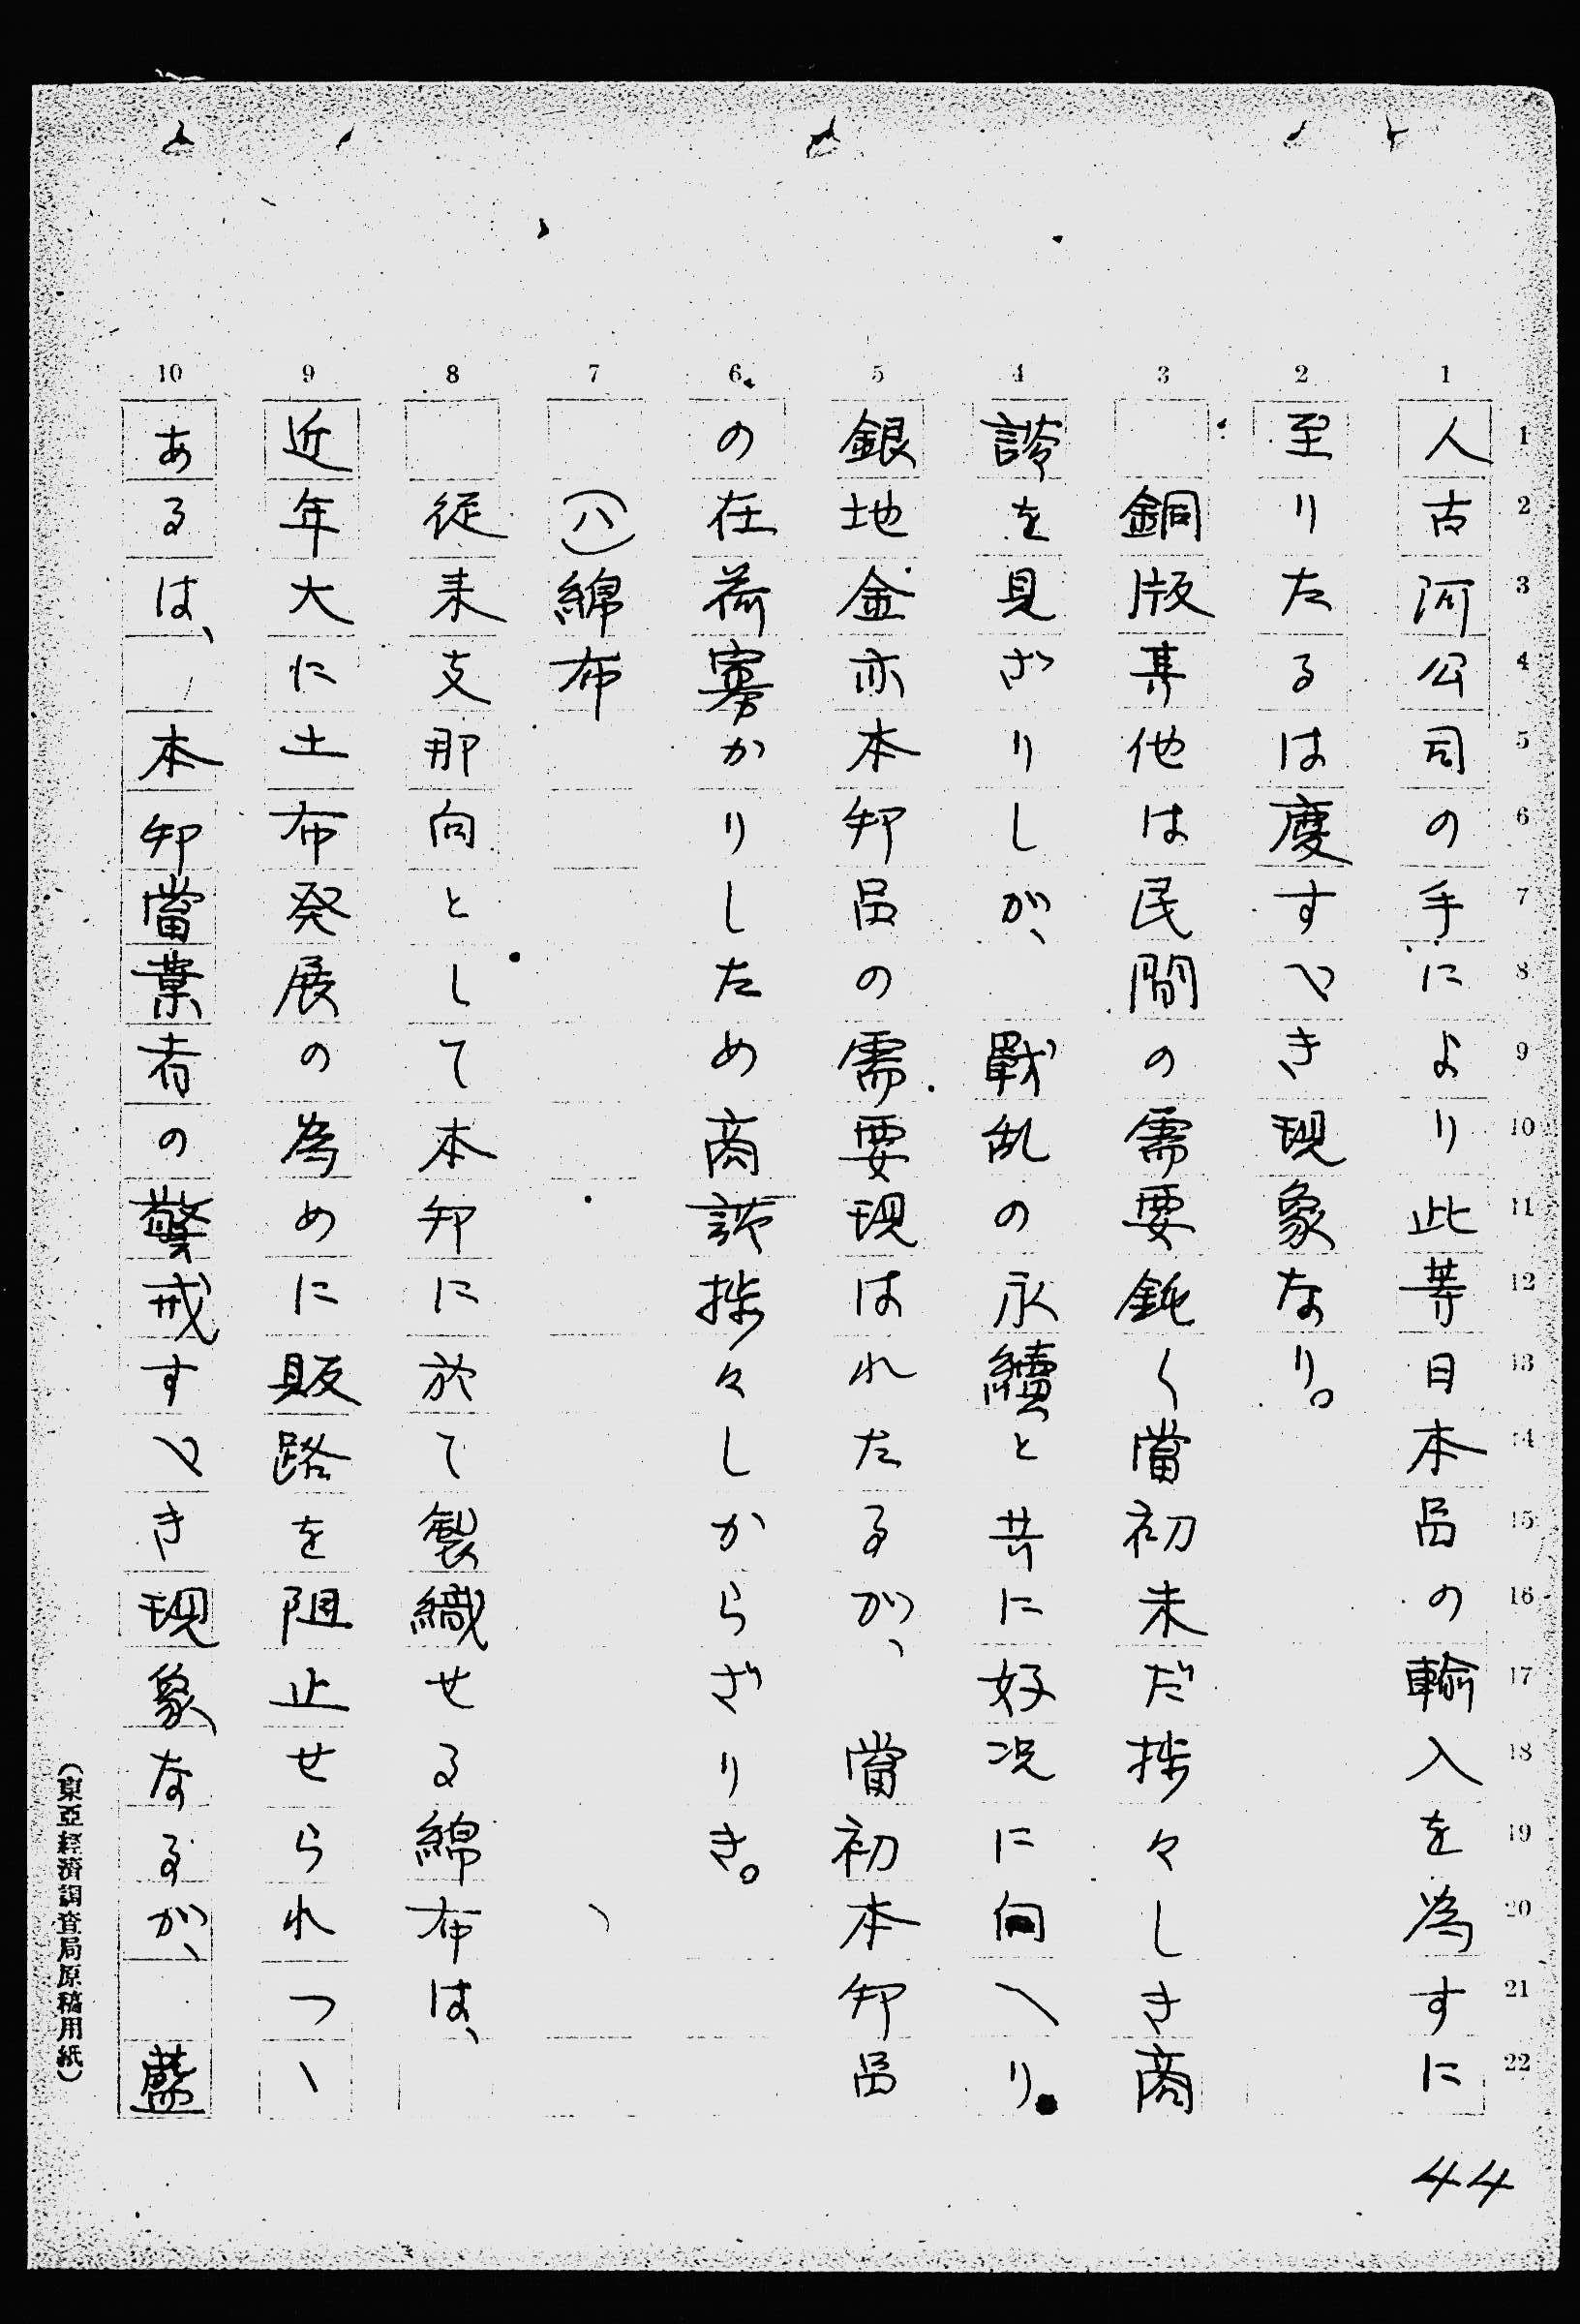 人古河公司の手により此等日本品の輸入を為すに
至りたるは慶すべき現象なり。
銅版其他は民間の需要鈍く當初未だ捗々しき商
談を見ざりしが、戰乱の永續と共に好況に向へり。
銀地金亦本邦品の需要現はれたるが、當初本邦品
の在荷寡かりしため商談捗々しからざりき。
(八)綿布
従来支那向として本邦に於て製織せる綿布は、
近年大に土布発展の為めに販路を阻止せられつゝ
あるは、本邦當業者の警戒すべき現象なるが、藍
(東亞經濟調査局原稿用紙)
44
1 2 3 4 5 6 7 8 9 10
1 2 3 4 5 6 7 8 9 10 11 12 13 14 15 16 17 18 19 20 21 22